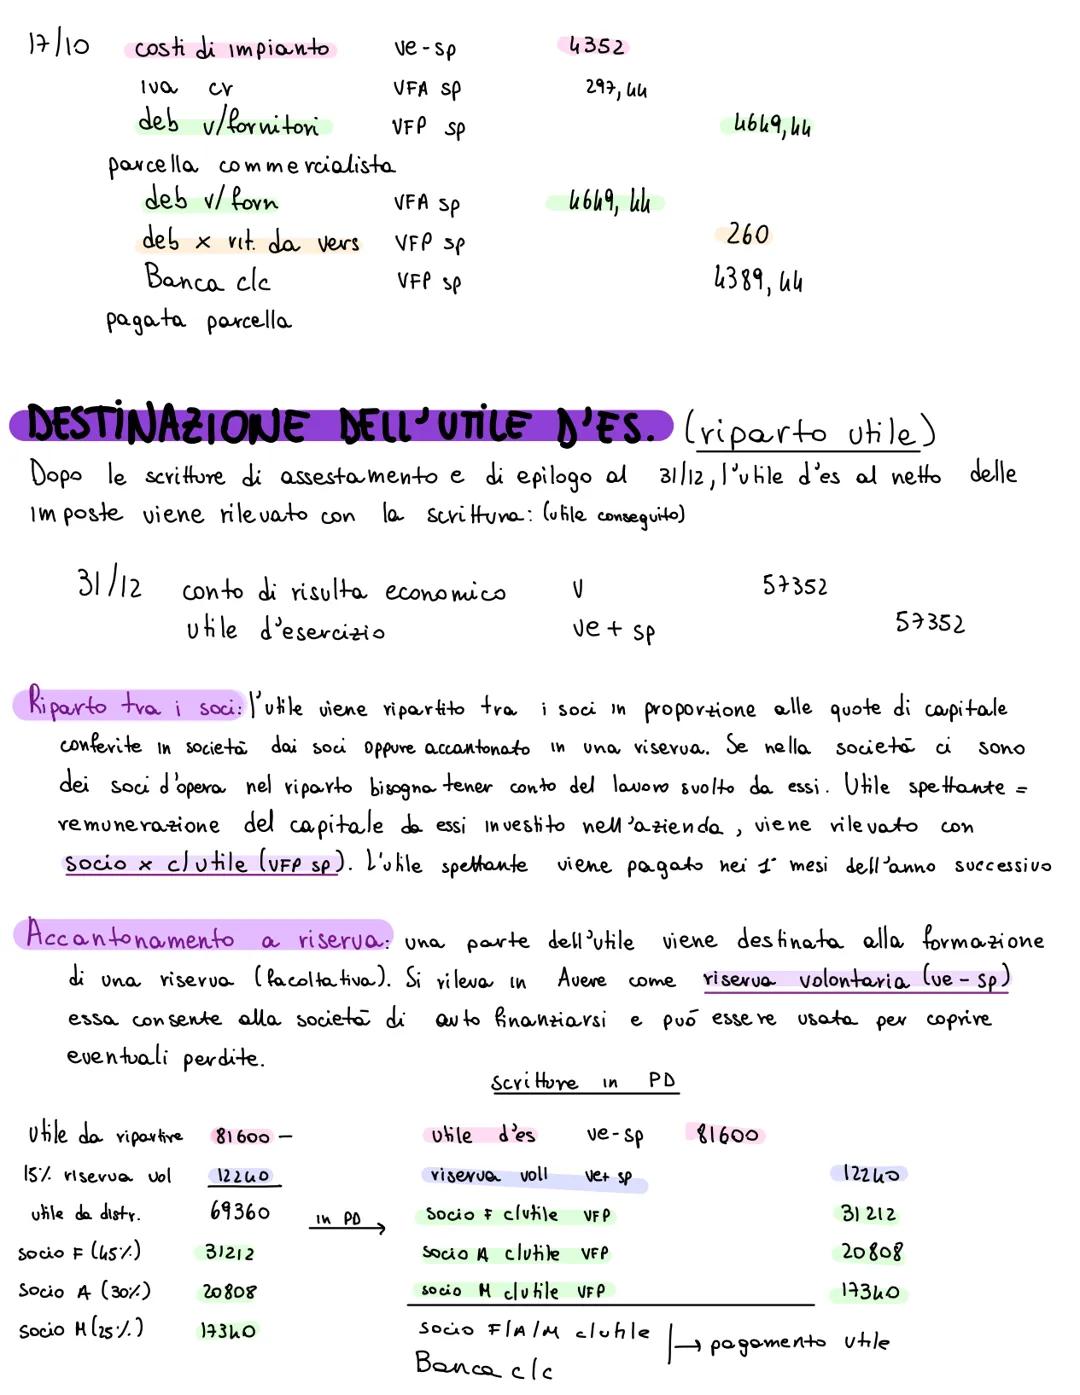 17/10 costi di impianto ve-sp 4352
iva cr VFA sp 297,44
deb v/fornitori VFP sp 4649,44
parcella commercialista
deb v/forn VFA sp 4649,44
deb x rit. da vers VFP sp 260
Banca c/c VFP sp 4389,44
pagata parcella
DESTINAZIONE DELL'UTILE D'ES. (riparto utile)
Dopo le scritture di assestamento e di epilogo al 31/12, l'utile d'es al netto delle
imposte viene rilevato con la scrittura: (utile conseguito)
31/12 conto di risulta economico V 57352
utile d'esercizio ve+ sp 57352
Riparto tra i soci: l'utile viene ripartito tra i soci in proporzione alle quote di capitale
conferite in società dai soci oppure accantonato in una riserva. Se nella società ci sono
dei soci d'opera nel riparto bisogna tener conto del lavoro svolto da essi. Utile spettante =
remunerazione del capitale da essi investito nell'azienda, viene rilevato con
socio x c/utile (VFP sp). L'utile spettante viene pagato nei 1° mesi dell'anno successivo
Accantonamento a riserva: una parte dell'utile viene destinata alla formazione
di una riserva (facoltativa). Si rileva in Avere come riserva volontaria (ve - sp)
essa consente alla società di auto finanziarsi e può essere usata per coprire
eventuali perdite.
scritture in PD
Utile da ripartire 81600 - utile d'es ve-sp 81600
15% riserva vol 12240 riserva voll ve+ sp 12240
utile da distr. 69360 in PD → socio F c/utile VFP 31212
socio F (45%) 31212 socio A c/utile VFP 20808
socio A (30%) 20808 socio M c/utile VFP 17340
socio M (25%) 17340 socio F/A/M c/utile |→ pagamento utile
Banca c/c